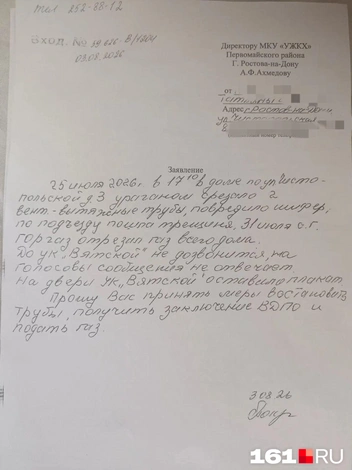 Тел. 252-88-12
Вход. № 59.626-В/1204
03.08.2026
Директору МКУ «УЖКХ»
Первомайского района
Г. Ростова-на-Дону
А.Ф.Ахмедову
от
Адрес г Ростов на Дону
ул
8
Заявление
25 июля 2026г. в 17 10 в доме по ул Чисто-
польской д 3 ураганом срезало 2
вент-вытяжные трубы, повредило шифер,
по подъезду пошла трещина, 31 июля с.г.
Горгаз отрезал газ всего дома.
До ук „Вятской" не дозвонится, на
голосовы сообщения не отвечает
На двери Ук „Вятской" оставила плакат
Прошу Вас принять меры востановить
трубы, получить заключение ВДПО и
подать газ.
3 08 26
161.RU